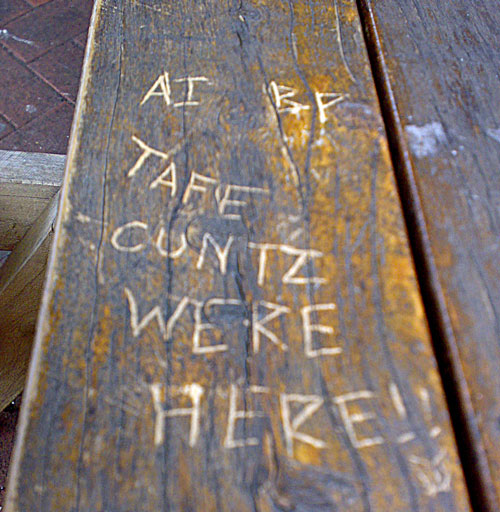 AI BP
TAFE
CUNTZ
WERE
HERE!!